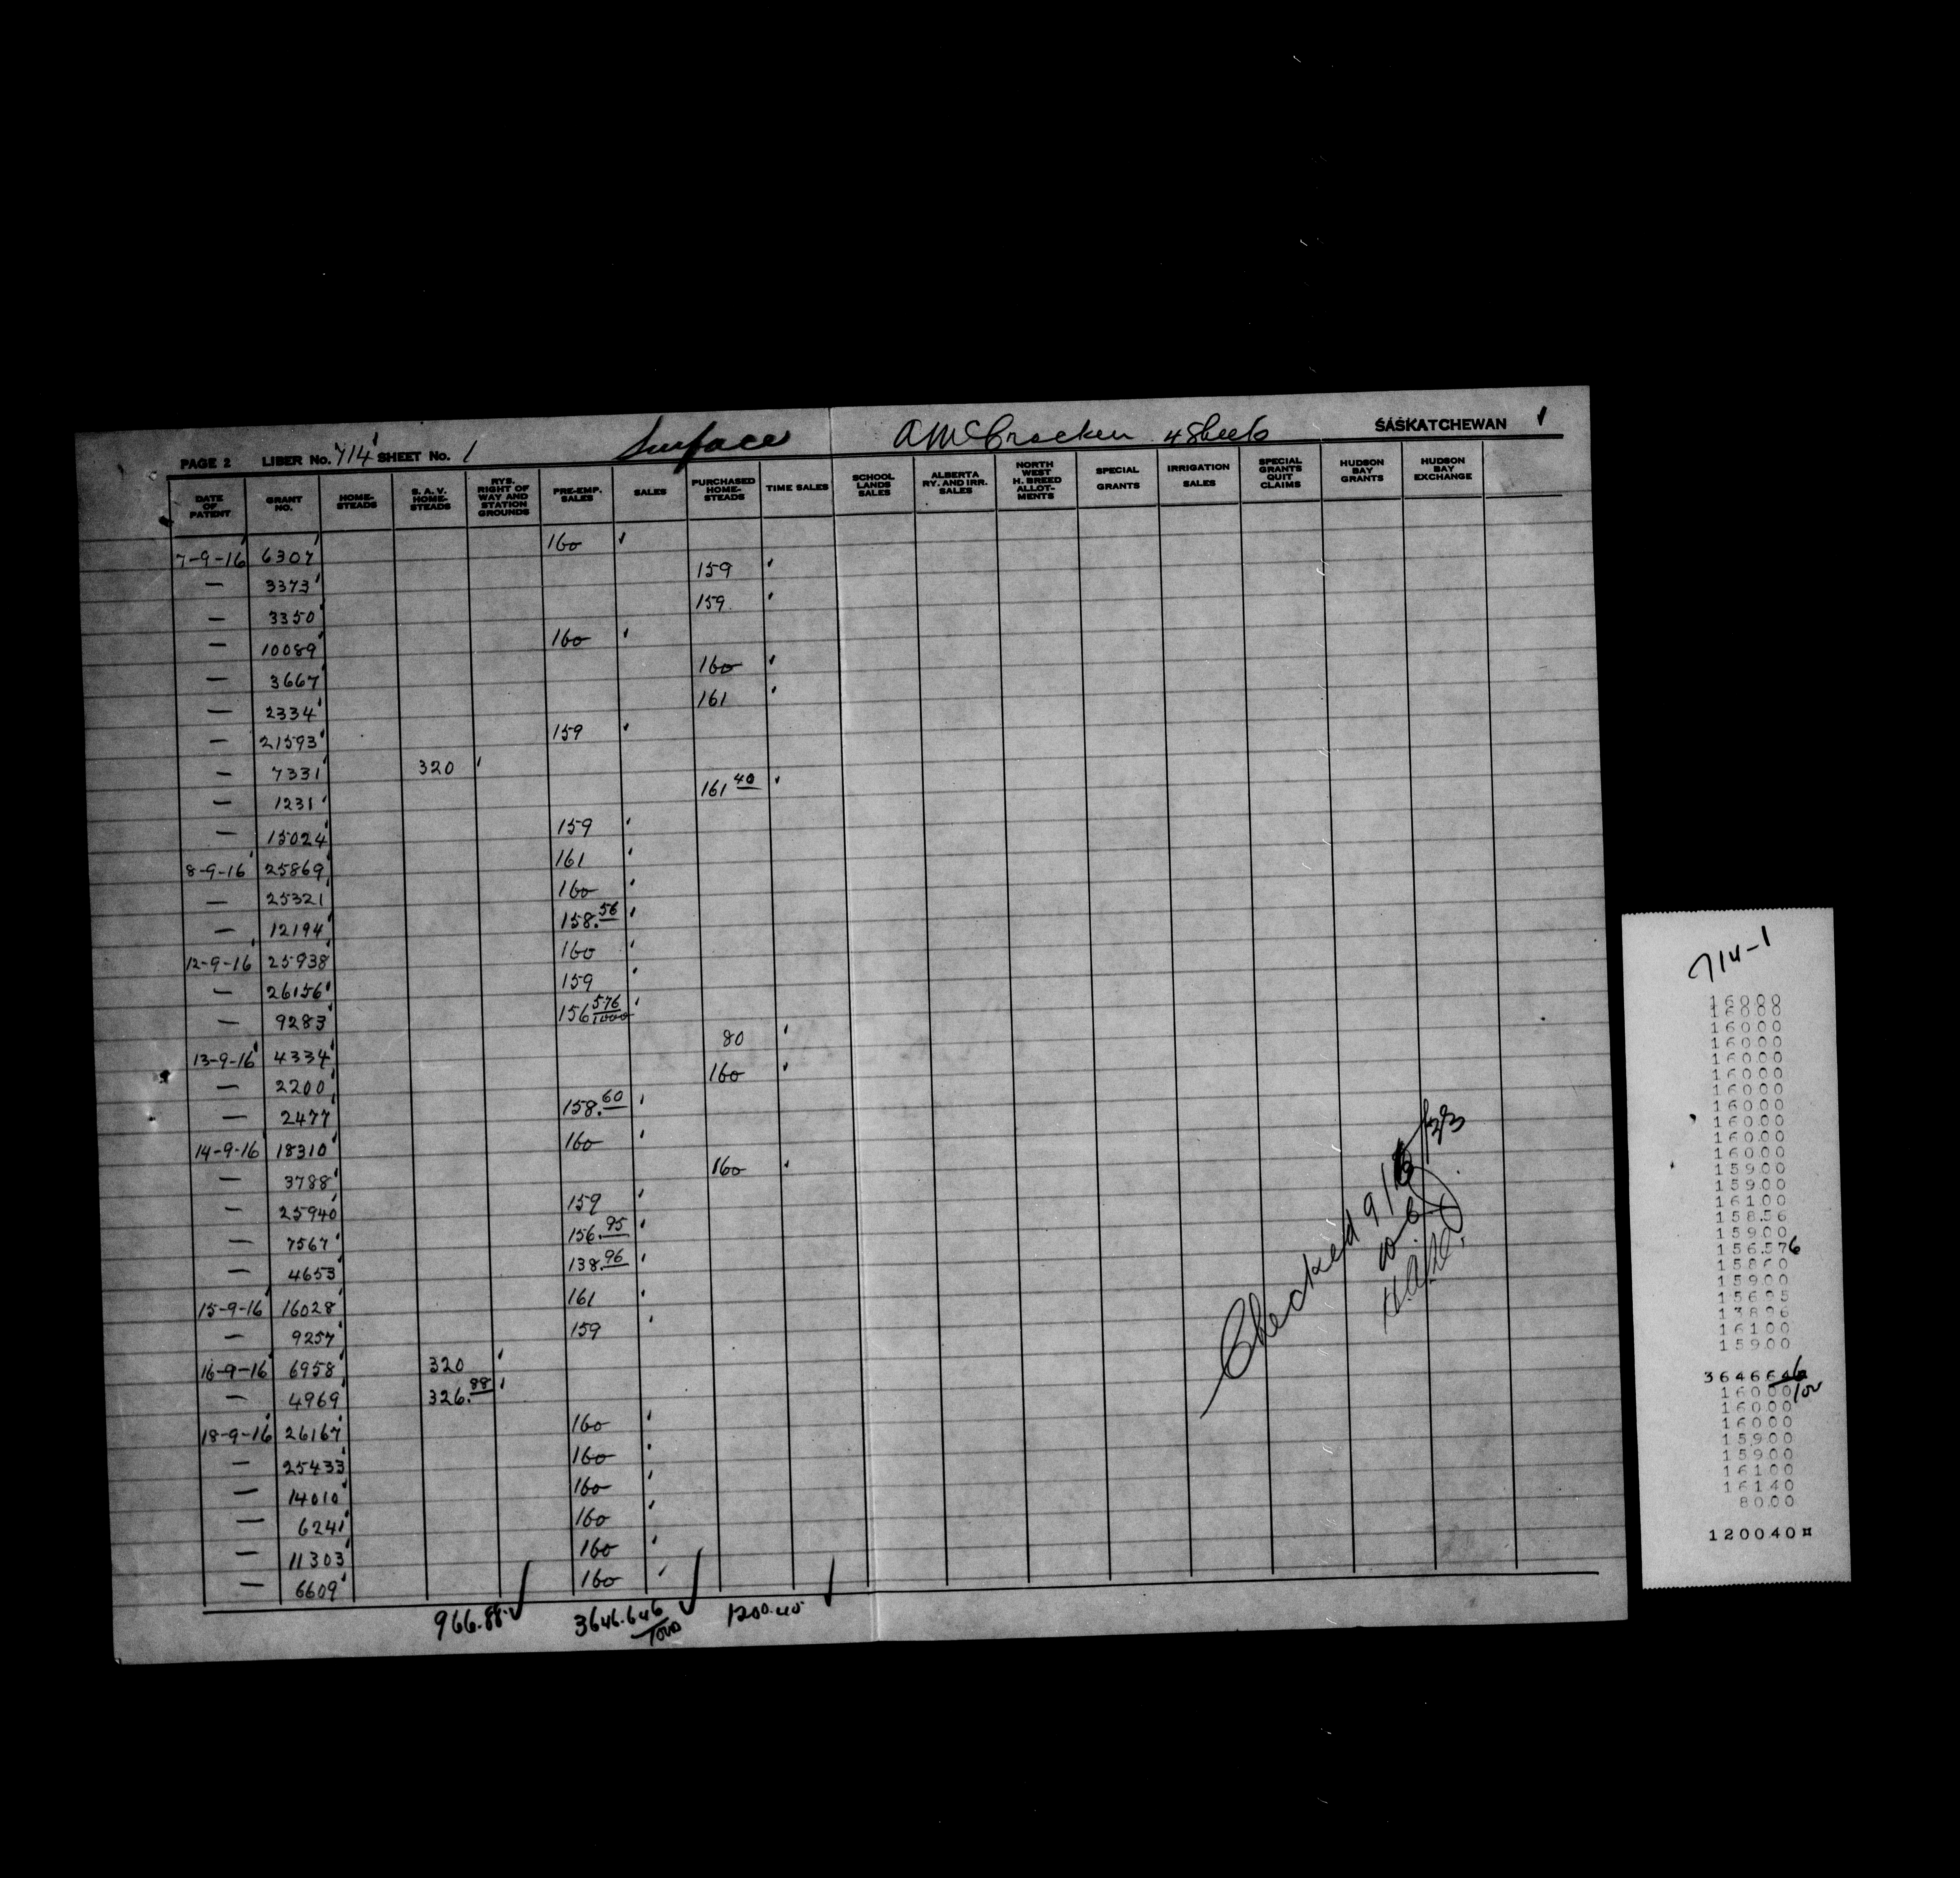 Surface
A McCracken 4 Sheets
SASKATCHEWAN
PAGE 2 LIBER No. 714 SHEET No. 1
DATE OF PATENT | GRANT NO. | HOME-STEADS | S. A. V. HOME-STEADS | RYS. RIGHT OF WAY AND STATION GROUNDS | PRE-EMP. SALES | SALES | PURCHASED HOME-STEADS | TIME SALES | SCHOOL LANDS SALES | ALBERTA RY. AND IRR. SALES | NORTH WEST H. BREED ALLOT-MENTS | SPECIAL GRANTS | IRRIGATION SALES | SPECIAL GRANTS QUIT CLAIMS | HUDSON BAY GRANTS | HUDSON BAY EXCHANGE
7-9-16 6307 160
— 3373 159
— 3350 159
— 10089 160
— 3667 160
— 2334 161
— 21593 159
— 7331 320
— 1231 161 40
— 15024 159
8-9-16 25869 161
— 25321 160
— 12194 158.56
12-9-16 25938 160
— 26156 159
— 9283 156 576/1000
13-9-16 4334 80
— 2200 160
— 2477 158.60
14-9-16 18310 160
— 3788 160
— 25940 159
— 7567 156.95
— 4653 138.96
15-9-16 16028 161
— 9257 159
16-9-16 6958 320
— 4969 326.88
18-9-16 26167 160
— 25433 160
— 14010 160
— 6241 160
— 11303 160
— 6609 160
966.88 3646.646/1000 1200.40
Checked
714-1
160.00
160.00
160.00
160.00
160.00
160.00
160.00
160.00
160.00
160.00
160.00
159.00
159.00
161.00
158.56
159.00
156.576
158.60
159.00
156.95
138.96
161.00
159.00
3646646
160.00
160.00
160.00
159.00
159.00
161.00
161.40
80.00
120040¤